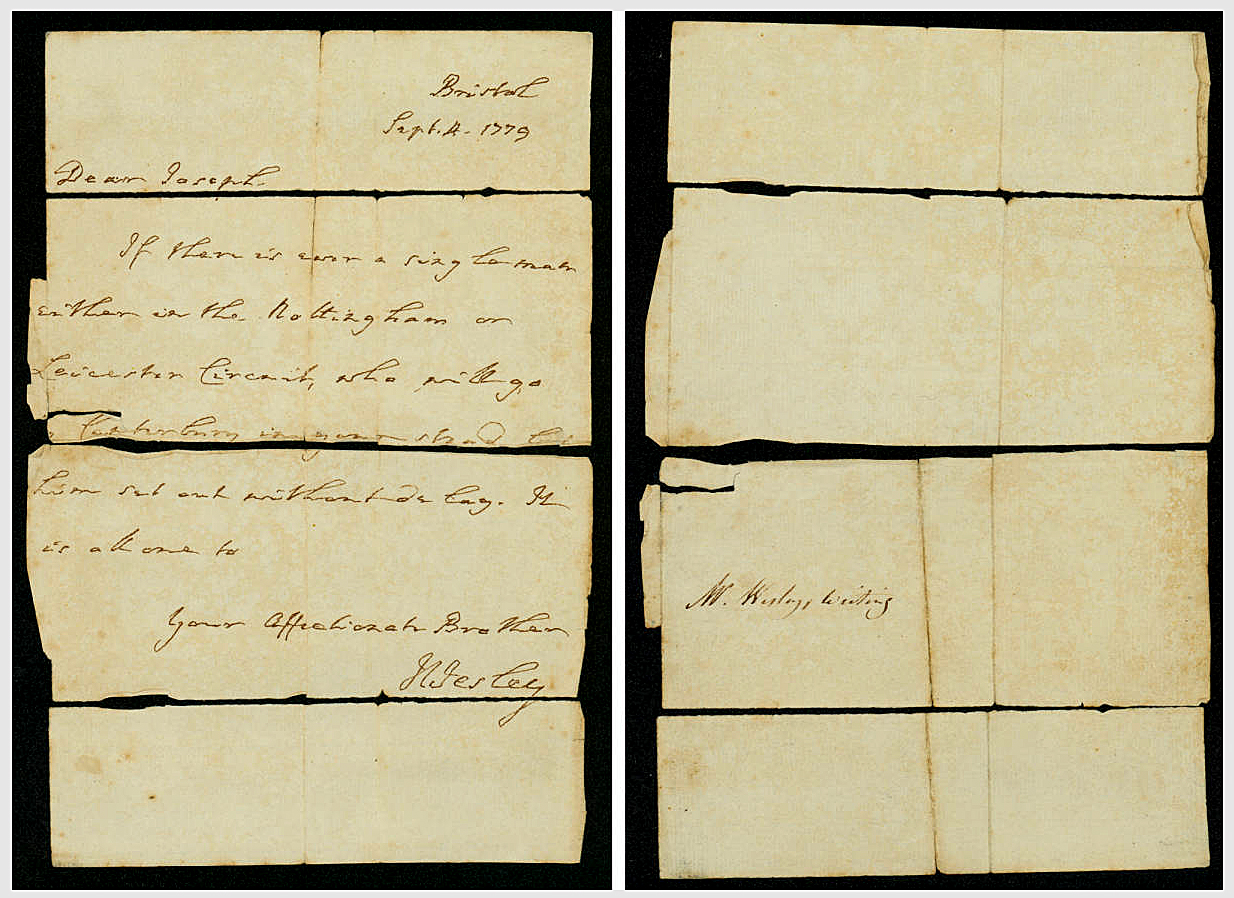 Bristol
Sept. 4. 1779
Dear Joseph.
If there is ever a single man
either in the Nottingham or
Leicester Circuit, who will go
Canterbury in your stead let
him set out without delay. It
is all one to
Your Affectionate Brother
JWesley
Mr. Wesley's writing